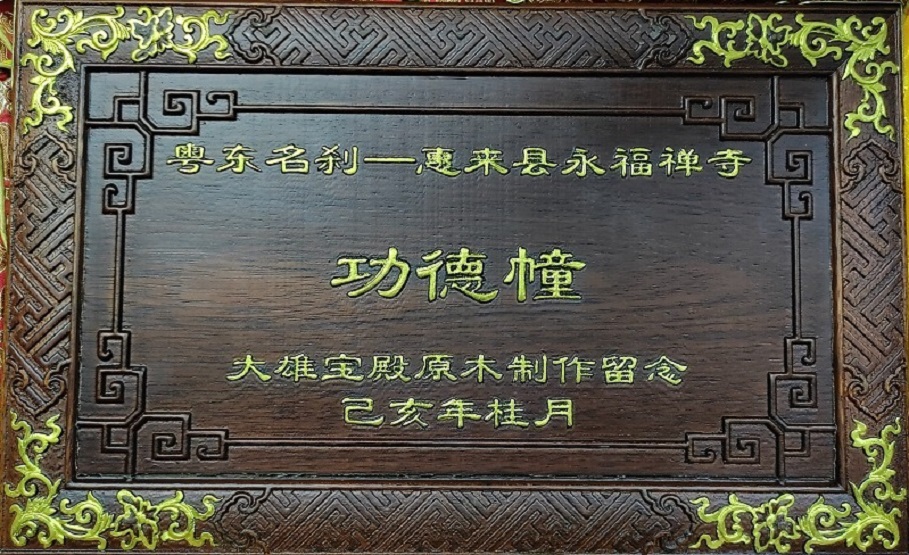 粤东名刹—惠来县永福禅寺
功德幢
大雄宝殿原木制作留念
己亥年桂月